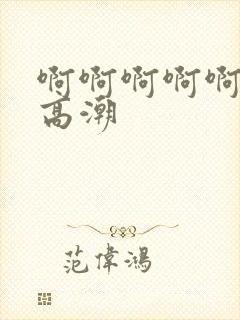 啊啊啊啊啊
高潮
范偉鴻